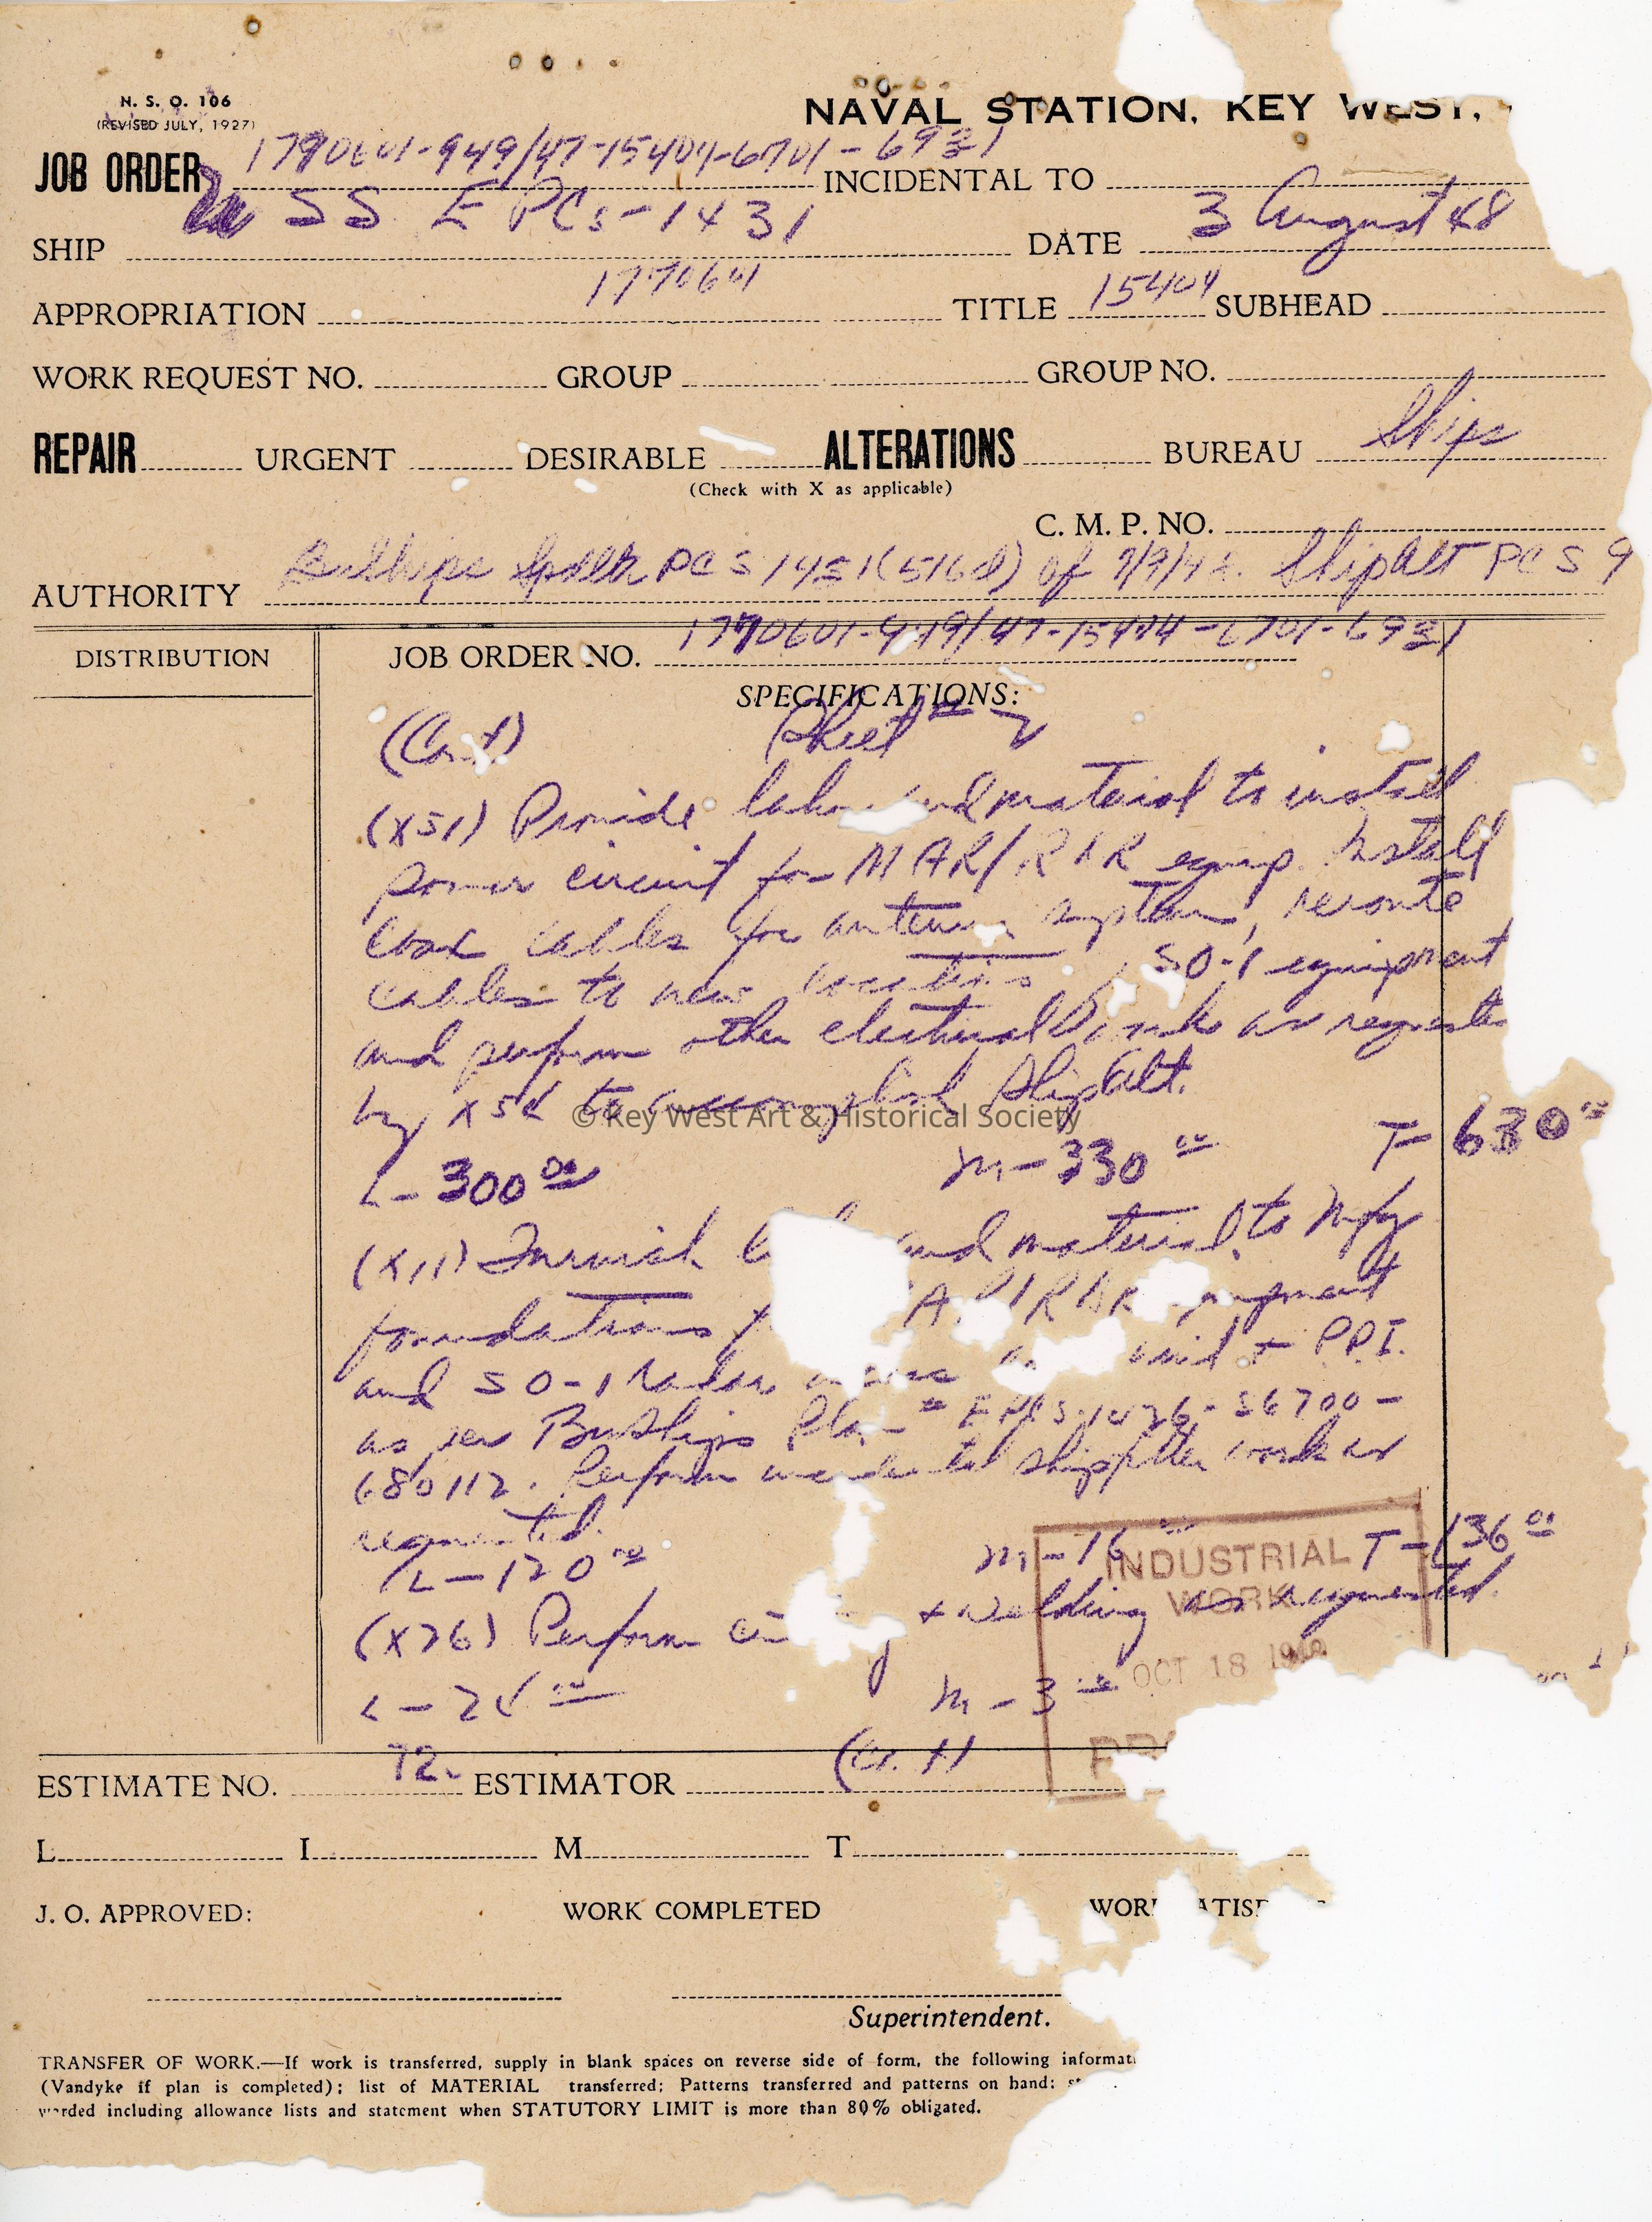 N. S. O. 106
(REVISED JULY, 1927)
NAVAL STATION, KEY WEST,
JOB ORDER 1790601-949/47-15404-6701-6931 INCIDENTAL TO
SHIP USS EPCs-1431 DATE 3 August 48
APPROPRIATION 1770601 TITLE 15404 SUBHEAD
WORK REQUEST NO. GROUP GROUP NO.
REPAIR URGENT DESIRABLE ALTERATIONS BUREAU Ships
(Check with X as applicable)
C. M. P. NO.
AUTHORITY BuShips PCS 1431(516d) of ShipAlt PCS 9
JOB ORDER NO. 1790601-949/47-15404-6701-6931
DISTRIBUTION
SPECIFICATIONS:
(Con't) Sheet # 2
(X51) Provide and material to install
power circuit for MAR/RBR equip. Install
coax cables for antenna system, reroute
cables to new location SO-1 equipment
and perform other electrical work as requested
by X54 to accomplish ShipAlt.
© Key West Art & Historical Society
L-300 00 M-330 00 T-630 00
(X11) Furnish and material to Mfg
foundations RBR equipment
and SO-1 radar unit + PPI.
as per BuShips Plan # EPCS-1426-S6700-
680112. Perform incidental shipfitter work as
requested.
L-120 00 M-16 T-136 00
(X26) Perform + welding as requested.
L-24 00 M-3
72. (Con't)
INDUSTRIAL
WORK
OCT 18
ESTIMATE NO. ESTIMATOR
L I M T
J. O. APPROVED: WORK COMPLETED
Superintendent.
TRANSFER OF WORK.—If work is transferred, supply in blank spaces on reverse side of form, the following
(Vandyke if plan is completed); list of MATERIAL transferred; Patterns transferred and patterns on hand;
including allowance lists and statement when STATUTORY LIMIT is more than 80% obligated.